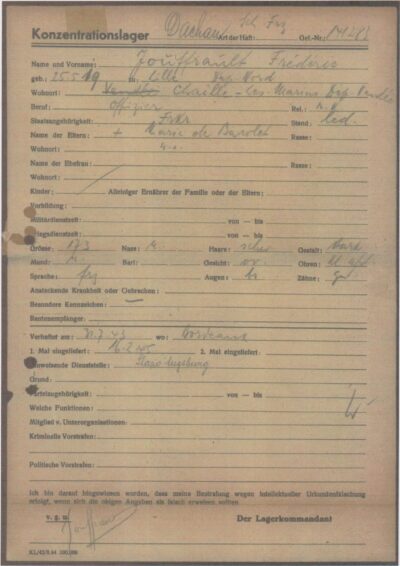 Konzentrationslager Dachau Art der Haft: Sch. Frz Gef.-Nr.:
Name und Vorname: Jouffrault Fréderic
geb.: 25.5.19 zu: Lille Dep. Nord
Wohnort: Chaille-les-Marais Dep. Vendée
Beruf: Offizier Rel.:
Staatsangehörigkeit: Stand: led.
Name der Eltern: + Marie de Rasse:
Wohnort:
Name der Ehefrau: Rasse:
Wohnort:
Kinder: Alleiniger Ernährer der Familie oder der Eltern:
Vorbildung:
Militärdienstzeit: von — bis
Kriegsdienstzeit: von — bis
Grösse: 173 Nase: Haare: schw Gestalt:
Mund: Bart: Gesicht: ov. Ohren:
Sprache: frz Augen: Zähne: gut
Ansteckende Krankheit oder Gebrechen:
Besondere Kennzeichen: —
Rentenempfänger:
Verhaftet am: wo: Bordeaux
1. Mal eingeliefert: 16.2.45 2. Mal eingeliefert:
Einweisende Dienststelle:
Grund:
Parteiangehörigkeit: von — bis
Welche Funktionen:
Mitglied v. Unterorganisationen:
Kriminelle Vorstrafen:
Politische Vorstrafen:
Ich bin darauf hingewiesen worden, dass meine Bestrafung wegen intellektueller Urkundenfälschung
erfolgt, wenn sich die obigen Angaben als falsch erweisen sollten.
v. g. u. Der Lagerkommandant